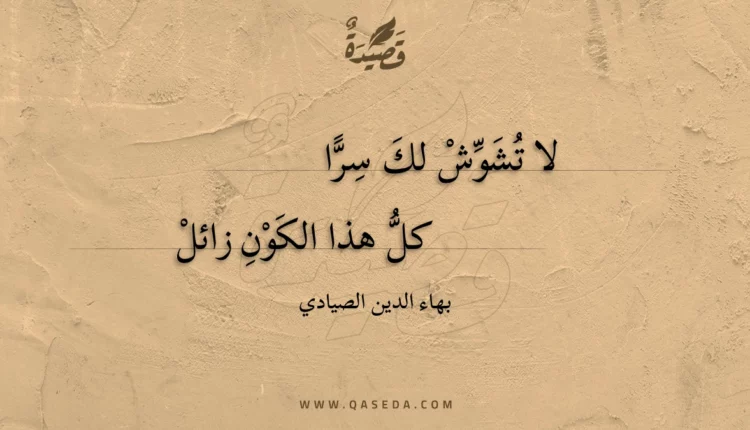 قَصِيْدَةٌ
لا تُشَوِّشْ لكَ سِرًّا
كلُّ هذا الكَوْنِ زائلْ
بهاء الدين الصيادي
WWW.QASEDA.COM